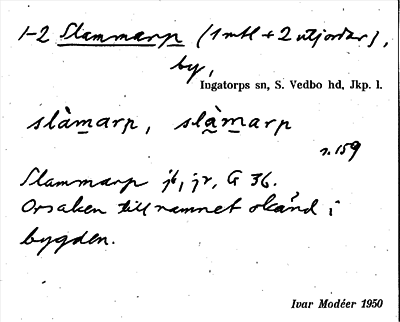 1-2 Slammarp (1 mtl + 2 utjordar),
by,
Ingatorps sn, S. Vedbo hd, Jkp. l.
slàmarp, slàmarp
s. 159
Slammarp jb, jr, G 36.
Orsaken till namnet okänd i
bygden.
Ivar Modéer 1950